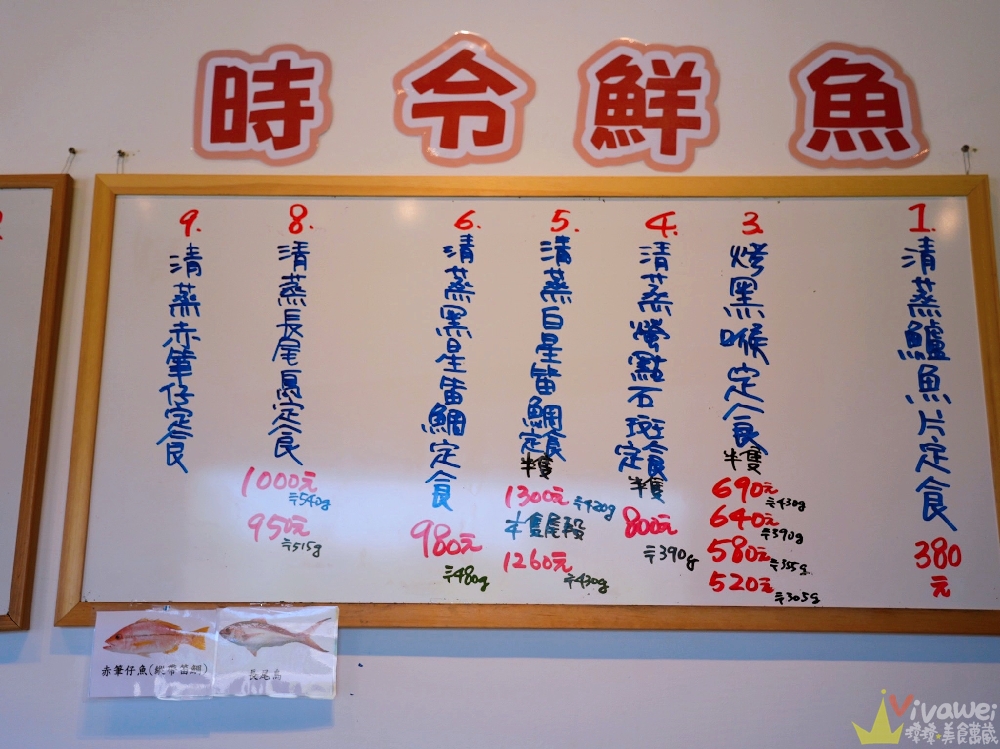 時令鮮魚
1.
清蒸鱸魚片定食
380
元
3.
烤黑喉定食
半隻
690元
〒430g
640元
〒390g
580元
〒355g
520元
〒305g
4.
清蒸螢點石斑定食
半隻
800元
〒390g
5.
清蒸白星笛鯛定食
半隻
1300元
〒420g
半隻尾段
1260元
〒430g
6.
清蒸黑星笛鯛定食
980元
〒480g
8.
清蒸長尾鳥定食
1000元
〒540g
950元
〒515g
9.
清蒸赤筆仔定食
赤筆仔魚(縱帶笛鯛)
長尾鳥
Vivawei
美食藏